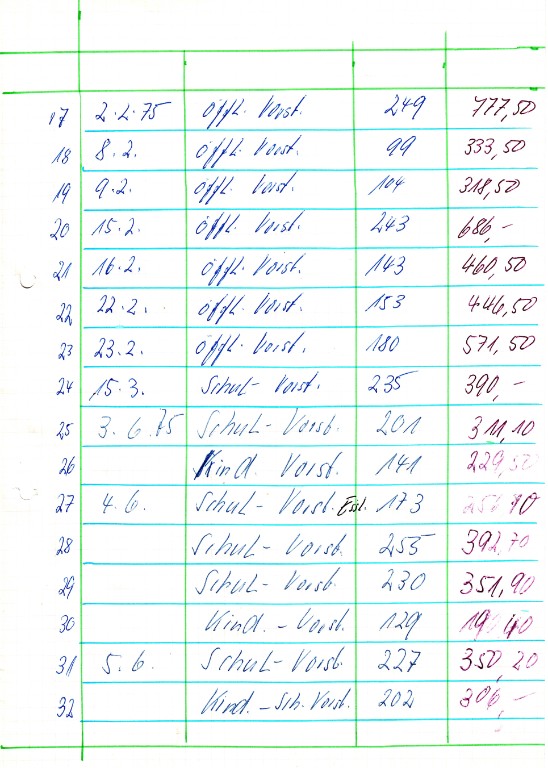 17 2.2.75 Öffl. Vorst. 249 777,50
18 8.2. Öffl. Vorst. 99 333,50
19 9.2. Öffl. Vorst. 104 318,50
20 15.2. Öffl. Vorst. 243 686,-
21 16.2. Öffl. Vorst. 143 460,50
22 22.2. Öffl. Vorst. 153 446,50
23 23.2. Öffl. Vorst. 180 571,50
24 15.3. Schul-Vorst. 235 390,-
25 3.6.75 Schul-Vorst. 201 311,10
26 Kind. Vorst. 141 229,50
27 4.6. Schul-Vorst. 173
28 Schul-Vorst. 255 392,70
29 Schul-Vorst. 230 351,90
30 Kind.-Vorst. 129
31 5.6. Schul-Vorst. 227 350,20
32 Kind.-Sch. Vorst. 202 306,-